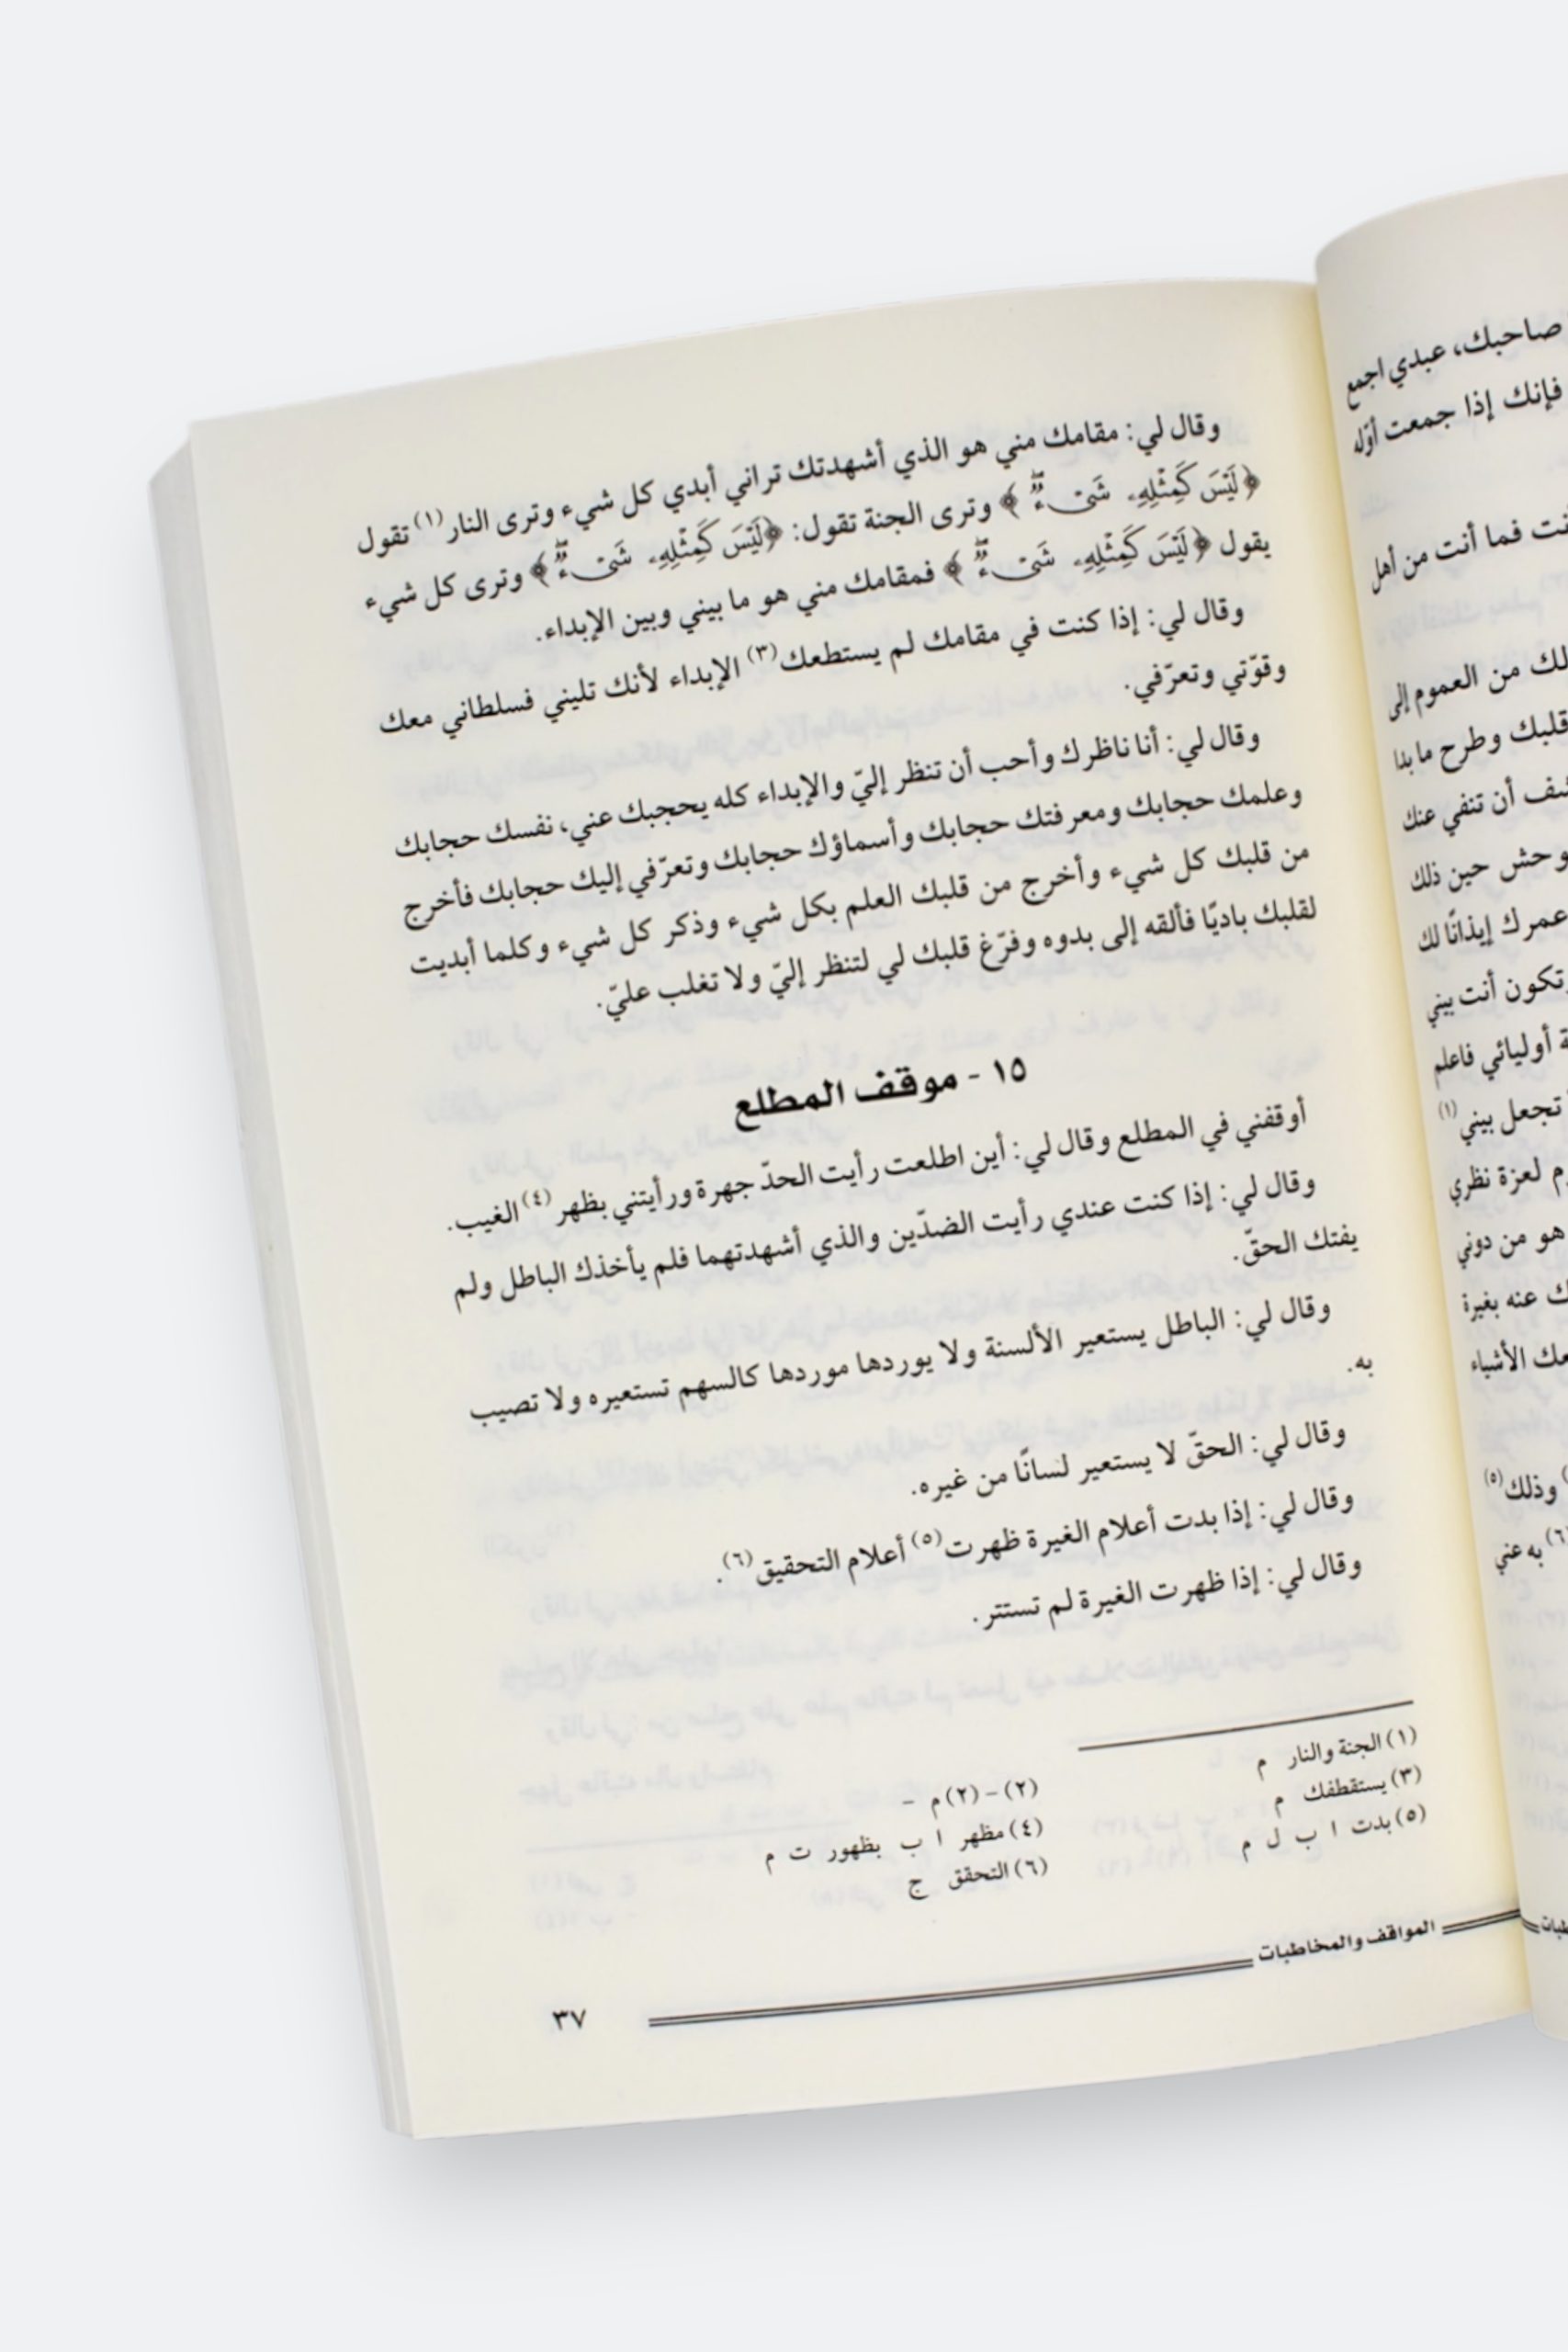 صاحبك، عبدي اجمع
فإنك إذا جمعت أوّله
فما أنت من أهل
من العموم إلى
قلبك وطرح ما بدا
أن تنفي عنك
حين ذلك
عمرك إيذانًا لك
وتكون أنت بيني
أوليائي فاعلم
تجعل بيني(١)
لعزة نظري
هو من دوني
عنه بغيرة
الأشياء
وذلك(٥)
(٦) به عني
وقال لي: مقامك مني هو الذي أشهدتك تراني أبدي كل شيء وترى النار(١) تقول
﴿لَيْسَ كَمِثْلِهِۦ شَىْءٌ﴾ وترى الجنة تقول: ﴿لَيْسَ كَمِثْلِهِۦ شَىْءٌ﴾ وترى كل شيء
يقول ﴿لَيْسَ كَمِثْلِهِۦ شَىْءٌ﴾ فمقامك مني هو ما بيني وبين الإبداء.
وقال لي: إذا كنت في مقامك لم يستطعك(٣) الإبداء لأنك تليني فسلطاني معك
وقوّتي وتعرّفي.
وقال لي: أنا ناظرك وأحب أن تنظر إليّ والإبداء كله يحجبك عني، نفسك حجابك
وعلمك حجابك ومعرفتك حجابك وأسماؤك حجابك وتعرّفي إليك حجابك فأخرج
من قلبك كل شيء وأخرج من قلبك العلم بكل شيء وذكر كل شيء وكلما أبديت
لقلبك باديًا فألقه إلى بدوه وفرّغ قلبك لي لتنظر إليّ ولا تغلب عليّ.
١٥ - موقف المطلع
أوقفني في المطلع وقال لي: أين اطلعت رأيت الحدّ جهرة ورأيتني بظهر(٤) الغيب.
وقال لي: إذا كنت عندي رأيت الضدّين والذي أشهدتهما فلم يأخذك الباطل ولم
يفتك الحقّ.
وقال لي: الباطل يستعير الألسنة ولا يوردها موردها كالسهم تستعيره ولا تصيب
به.
وقال لي: الحقّ لا يستعير لسانًا من غيره.
وقال لي: إذا بدت أعلام الغيرة ظهرت(٥) أعلام التحقيق(٦).
وقال لي: إذا ظهرت الغيرة لم تستتر.
(١) الجنة والنار م
(٢) - (٢) م -
(٣) يستقطفك م
(٤) مظهر ا ب بظهور ت م
(٥) بدت ا ب ل م
(٦) التحقق ج
المواقف والمخاطبات
٣٧